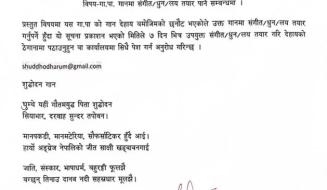 विषय-गा.पा. गानमा संगीत/धुन/लय तयार पार्ने सम्बन्धमा ।
प्रस्तुत विषयमा यस गा.पा को गान देहाय बमोजिमको छनौट भएकोले उक्त गानमा संगीत/धुन/लय तयार
गर्नुपर्ने हुँदा यो सूचना प्रकाशन भएको मितिले ७ दिन भित्र उपयुक्त संगीत/धुन/लय तयार गरि देहायको
ठेगानामा पठाउनुहुन वा कार्यालयमा सिधै पेश गर्न अनुरोध गरिन्छ ।
shuddhodharum@gmail.com
शुद्धोदन गान
घुम्थे यहीं गौतमबुद्ध पिता शुद्धोदन
सियाभार, दरबाह सुन्दर तपोवन।
मानपकडी, मानमटेरिया, सौफर्साटिकर हुँदै आई।
हार्यो अङग्रेज नेपालिको जीत साक्षी खड्चबनगाई
जाति, संस्कार, भाषाधर्म, बहुरङ्गी फूलझैं
बग्छन् तिनाउ दानव नदी सहस्रधार मूलझैं।